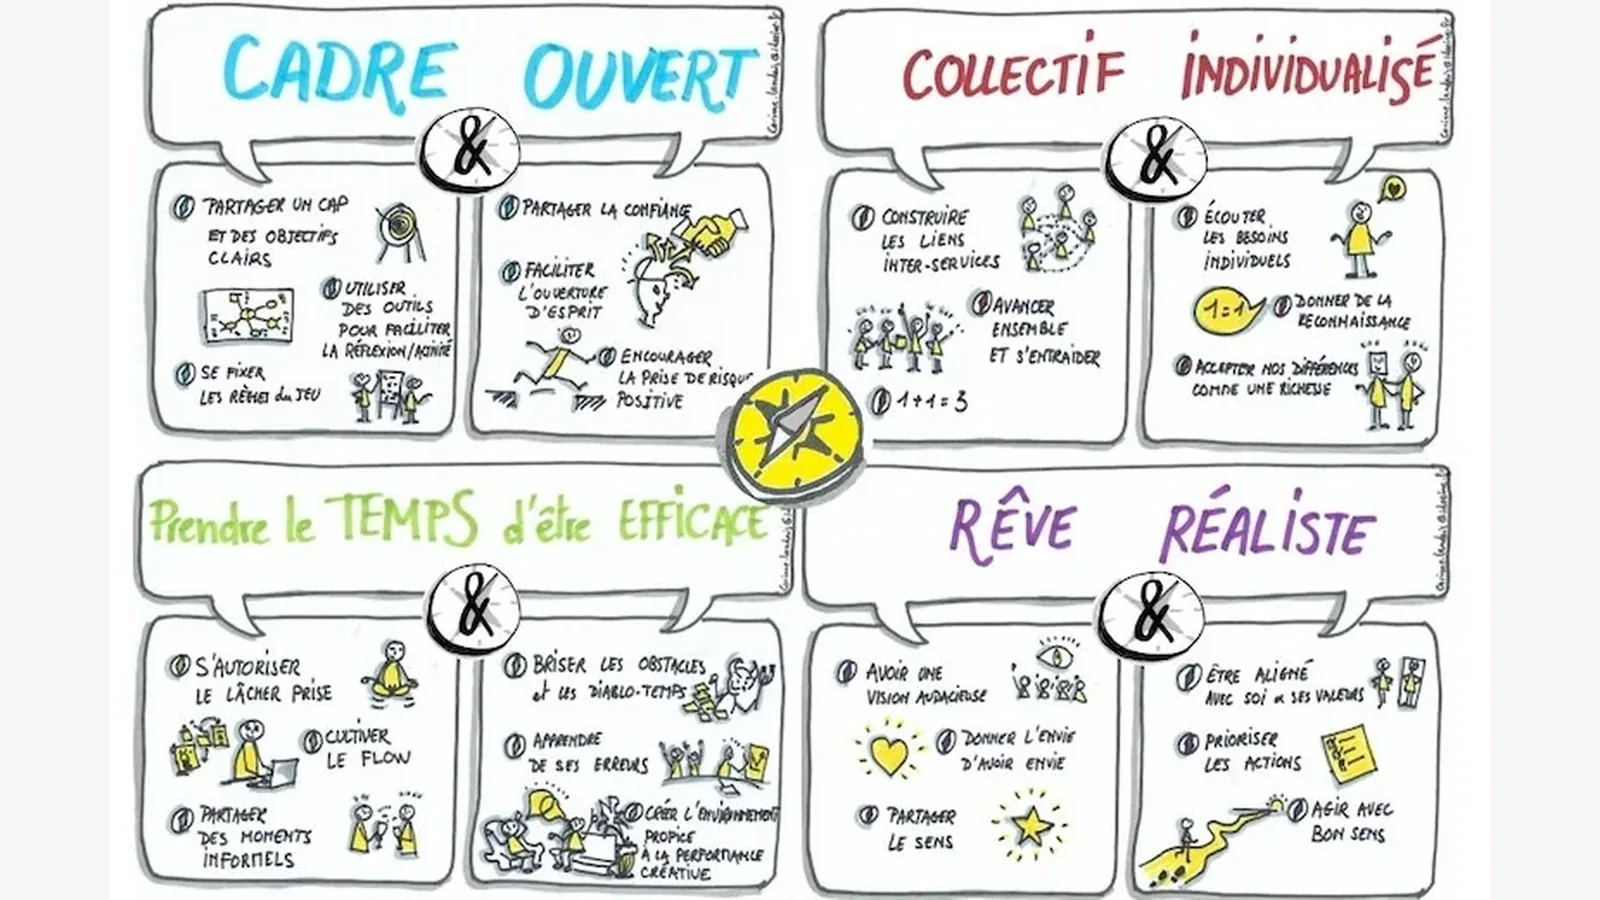 CADRE & OUVERT
PARTAGER UN CAP
ET DES OBJECTIFS
CLAIRS
UTILISER
DES OUTILS
POUR FACILITER
LA RÉFLEXION/ACTIVITÉ
SE FIXER
LES RÈGLES du JEU
PARTAGER LA CONFIANCE
FACILITER
L'OUVERTURE
D'ESPRIT
ENCOURAGER
LA PRISE DE RISQUE
POSITIVE
COLLECTIF & INDIVIDUALISÉ
CONSTRUIRE
LES LIENS
INTER-SERVICES
AVANCER
ENSEMBLE
ET S'ENTRAIDER
1+1=3
ÉCOUTER
LES BESOINS
INDIVIDUELS
1=1
DONNER DE LA
RECONNAISSANCE
ACCEPTER NOS DIFFÉRENCES
COMME UNE RICHESSE
Prendre le TEMPS & d'être EFFICACE
S'AUTORISER
LE LÂCHER PRISE
CULTIVER
LE FLOW
PARTAGER
DES MOMENTS
INFORMELS
BRISER LES OBSTACLES
et LES DIABLO-TEMPS
APPRENDRE
DE SES ERREURS
CRÉER L'ENVIRONNEMENT
PROPICE
À LA PERFORMANCE
CRÉATIVE
RÊVE & RÉALISTE
AVOIR UNE
VISION AUDACIEUSE
DONNER L'ENVIE
D'AVOIR ENVIE
PARTAGER
LE SENS
ÊTRE ALIGNÉ
AVEC SOI & SES VALEURS
PRIORISER
LES ACTIONS
AGIR AVEC
BON SENS